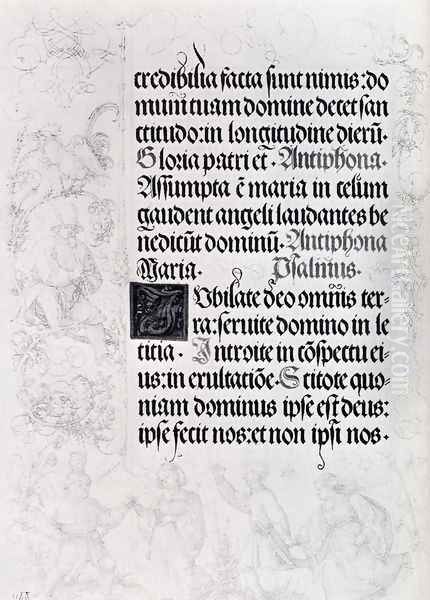 credibilia facta sunt nimis: do
mum tuam domine decet san
ctitudo: in longitudine dierū.
Gloria patri et. Antiphona.
Assumpta ē maria in celum
gaudent angeli laudantes be
nedicūt dominū. Antiphona
Maria. Psalmus.
IVbilate deo omnis ter⸗
ra: seruite domino in le
titia. Introite in cōspectu ei⸗
us: in exultatiōe. Scitote quo⸗
niam dominus ipse est deus:
ipse fecit nos: et non ipsi nos.